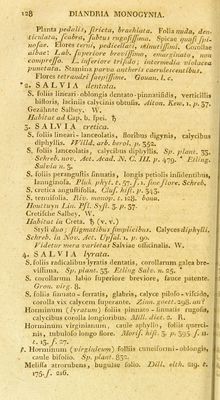 128 DIANDRIA MONOGYNIA.
Planta pedalis, stricta, brachiata. Folia nuda, den-
ticulata, scabra, subtus rugosissima. Spicae quasi spi-
nosae. Flores terni, pedicellati, minutissimi. Corollae
albae: Lab. superiore brevissimo, marginato, non
compresso. L. inferiore trifido; intermedia violacea
punctata. Stamina parva antheris caerulescentibus.
Flores tetrandri saepissime. Gouan. l. c.
2. SALVIA dentata.
S. foliis lineari-oblongis dentato-pinnatifidis, verticillis
bifloris, laciniis calycinis obtusis. Aiton. Kew. 1. p. 37.
Gezähnte Salbey. W.
Habitat ad Cap. b. spei. ♄
3. SALVIA cretica.
S. foliis lineari-lanceolatis, floribus digynis, calycibus
diphyllis. Willd. arb. berol. p. 352.
S. foliis lanceolatis, calycibus diphyllis. Sp. plant. 33.
Schreb. nov. Act. Acad. N. C. III. p. 479. Etling.
Salvia n. 3.
S. foliis perangustis sinuatis, longis petiolis insidentibus,
lanuginosis. Pluk. phyt. t. 57. f. 1. sine flore. Schreb.
S. cretica angustifolia. Clus. hist. p. 343.
S. tenuifolia. Riv. monop. t. 128. bona.
Houttuyn Lin. Pfl. Syst. 3. p. 37.
Cretische Salbey. W.
Habitat in Creta. ♄ (v. v.)
Styli duo; stigmatibus simplicibus. Calyces diphylli.
Schreb. in Nov. Act. Upsal. 1. p. 90.
Videtur mera varietas Salviae officinalis. W.
4. SALVIA lyrata.
S. foliis radicalibus lyratis dentatis, corollarum galea bre-
vissima. Sp. plant. 33. Etling Salv. n. 25.
S. corollarum labio superiore breviore, fauce patente.
Gron. virg. 8.
S. foliis sinuato-serratis, glabris, calyce piloso-viscido,
corolla vix calycem superante. Zinn. goett. 298. an?
Horminum (lyratum) foliis pinnato-sinuatis rugosis,
calycibus corolla longioribus. Mill. dict. 2. R.
Horminum virginianum, caule aphyllo, foliis querci-
nis, tubuloso longo flore. Moris. hist. 3. p. 395. s. 11.
t. 13. f. 27.
Horminum (virginicum) foliis cuneiformi-oblongis,
caule bifolio. Sp. plant. 832.
Melissa atrorubens, bugulae folio. Dill. elth. 219. t.
175. f. 216.